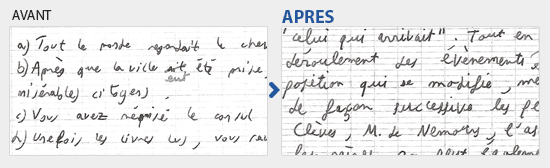 AVANT
a) Tout le monde regardait le
b) Après que la ville ait été prise
eut
misérables citoyens
c) Vous avez méprisé le consul
d) une fois, les livres lus, vous
APRES
"celui qui arrivait". Tout en
déroulement des évènements
position qui se modifie,
de façon successive les
Clèves, M. de Nemours,